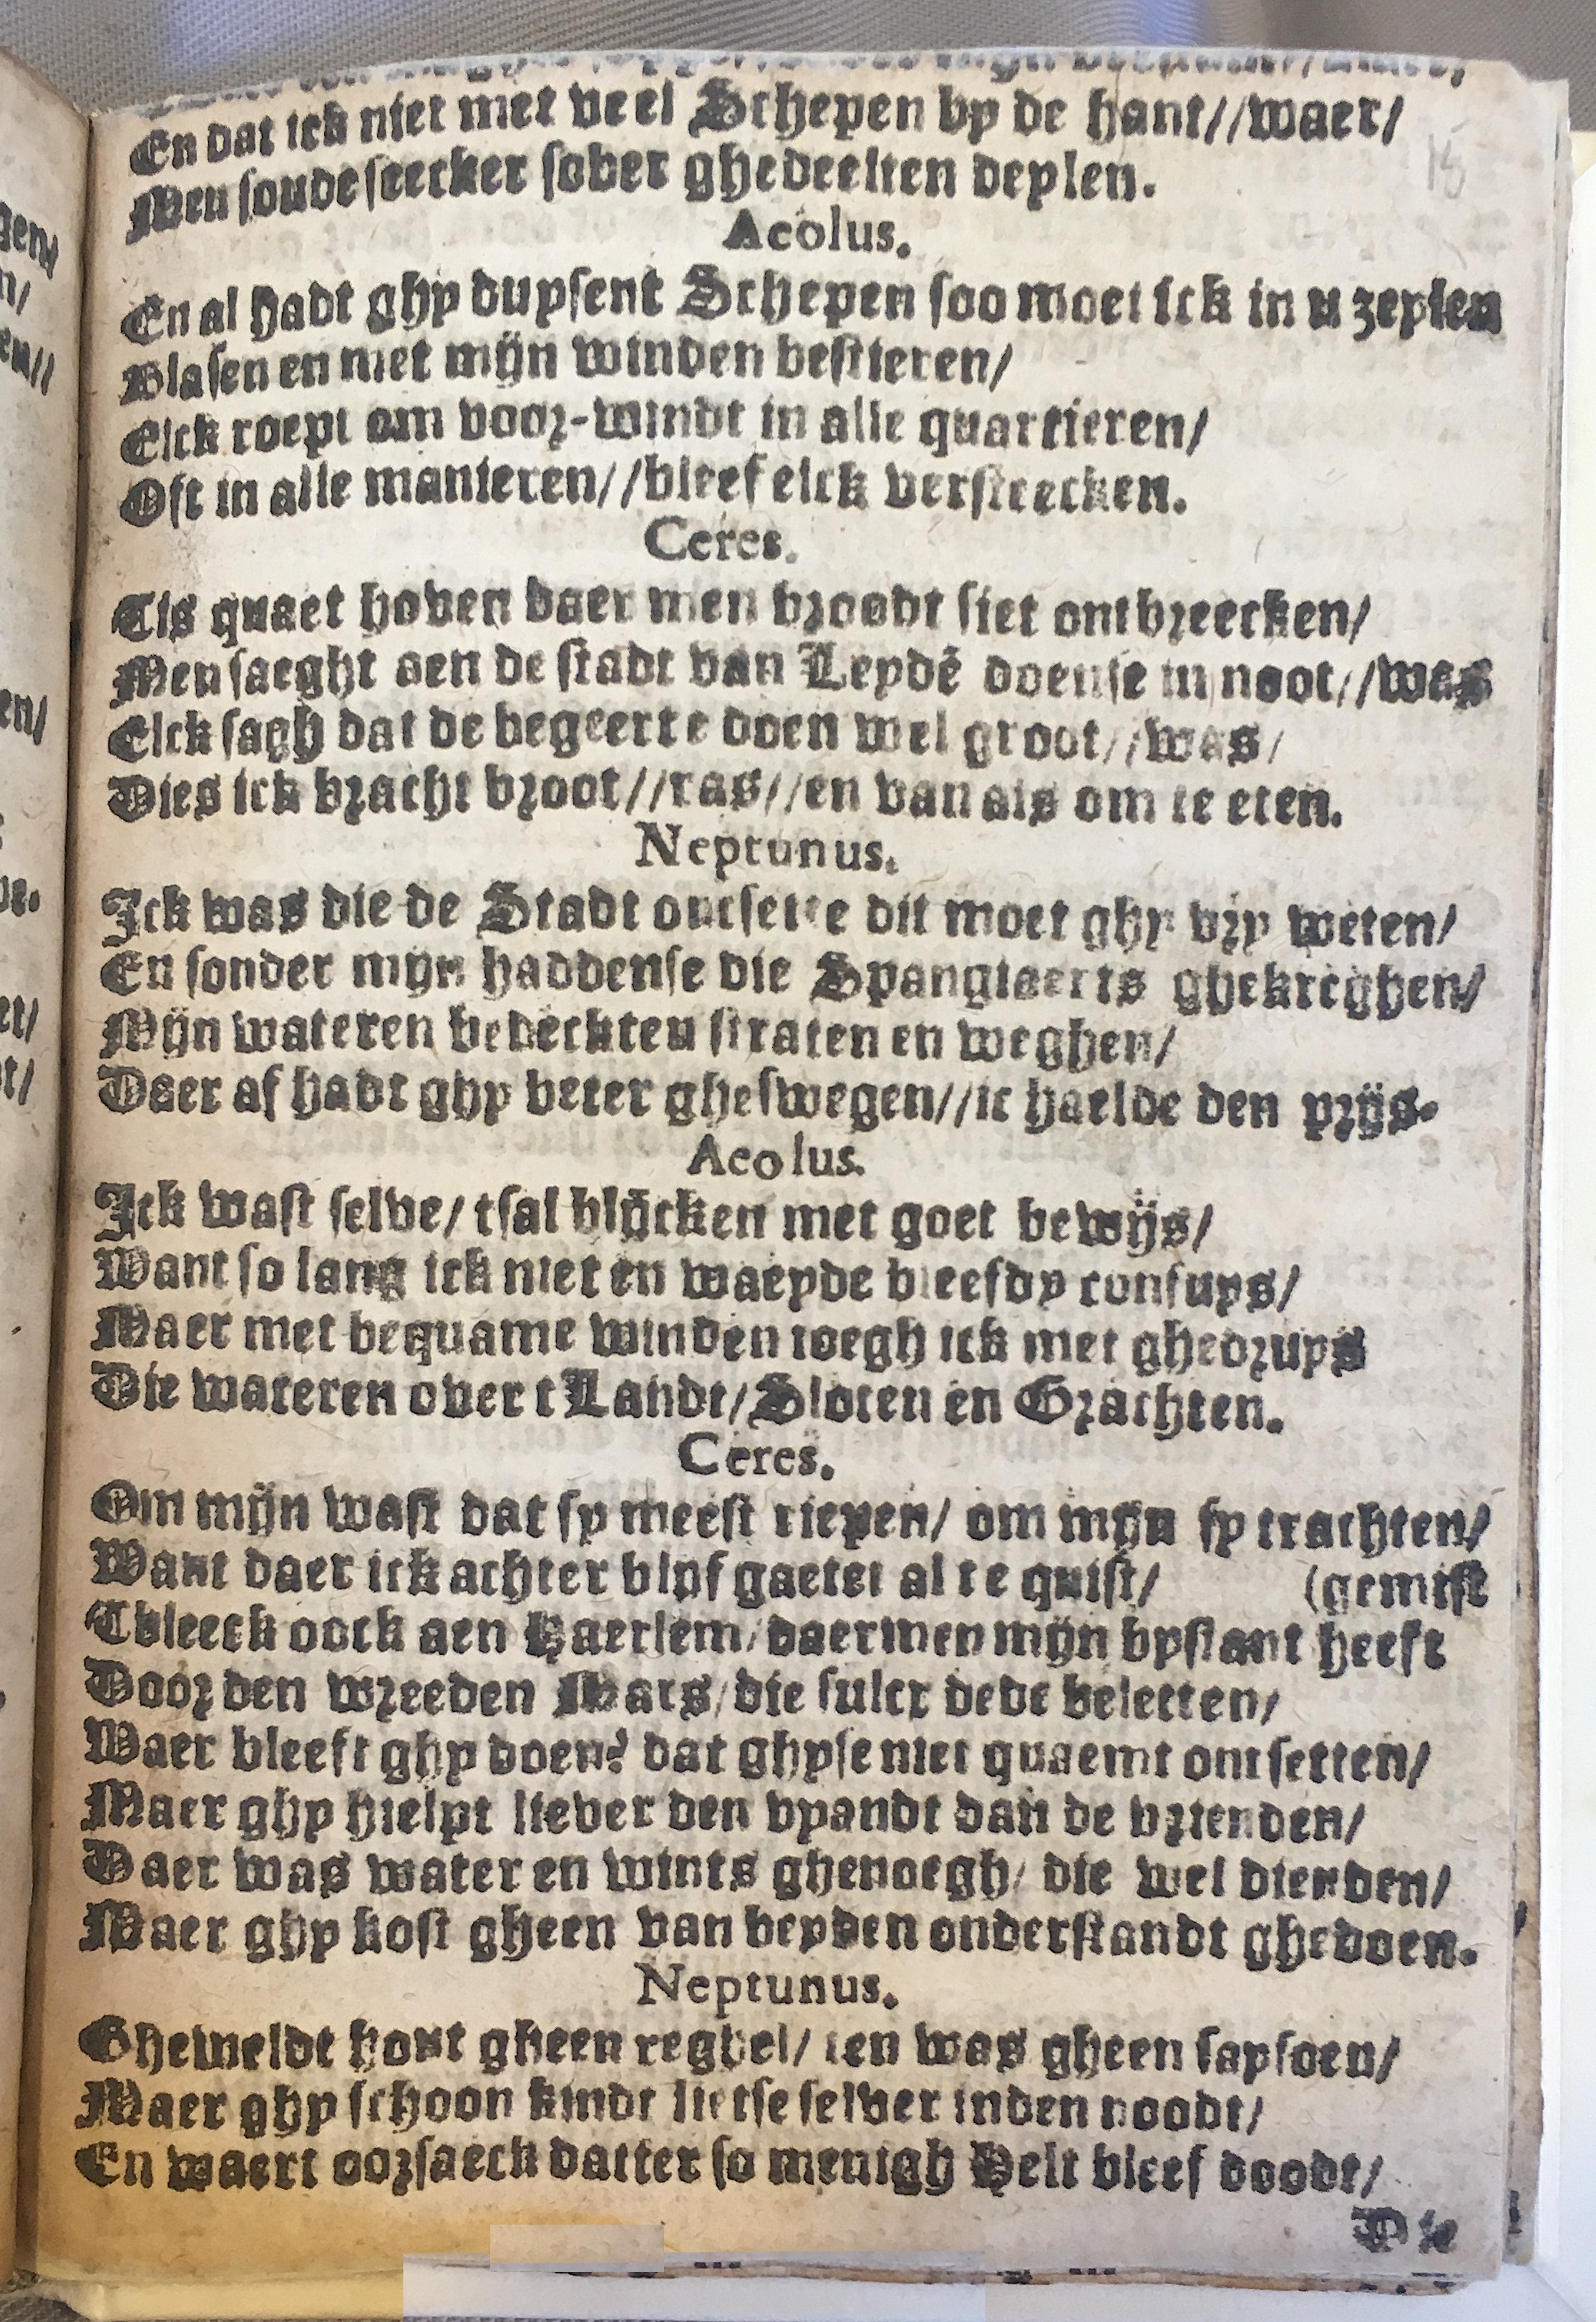 En dat ick niet met veel Schepen by de hant//waer/
Men soude seecker sober ghedeelten deylen.
Aeolus.
En al hadt ghy duysent Schepen soo moet ick in u zeylen
Blasen en met mijn winden bestieren/
Elck roept om voor-windt in alle quartieren/
Oft in alle manieren//bleef elck versteecken.
Ceres.
Tis quaet hoven daer men broodt siet ontbreecken/
Men saeght aen de stadt van Leydē doense in noot//was
Elck sagh dat de begeerte doen wel groot//was/
Dies ick bracht broot//ras//en van als om te eten.
Neptunus.
Ick was die de Stadt ontsette dit moet ghy vry weten/
En sonder mijn haddense die Spangiaerts ghekreghen/
Mijn wateren bedeckten straten en weghen/
Daer af hadt ghy beter gheswegen//ic haelde den prijs.
Aeolus.
Ick wast selve/ tsal blijcken met goet bewijs/
Want so lang ick niet en waeyde bleefdy confuys/
Maer met bequame winden joegh ick met ghedruys
Die wateren over t Landt/Sloten en Grachten.
Ceres.
Om mijn wast dat sy meest riepen/ om mijn sy trachten/
Want daer ick achter blyf gaetet al te quist/ (gemist
Tbleeck oock aen Haerlem/daermen mijn bystant heeft
Door den wreeden Mars/die sulcx dede beletten/
Waer bleeft ghy doen? dat ghyse niet quaemt ontsetten/
Maer ghy hielpt liever den vyandt dan de vrienden/
Daer was water en wints ghenoegh/ die wel dienden/
Maer ghy kost gheen van beyden onderstandt ghedoen.
Neptunus.
Gheweldt hout gheen reghel/ ten was gheen saysoen/
Maer ghy schoon kindt lietse selver inden noodt/
En waert oorsaeck datter so menigh Helt bleef doodt/
Die